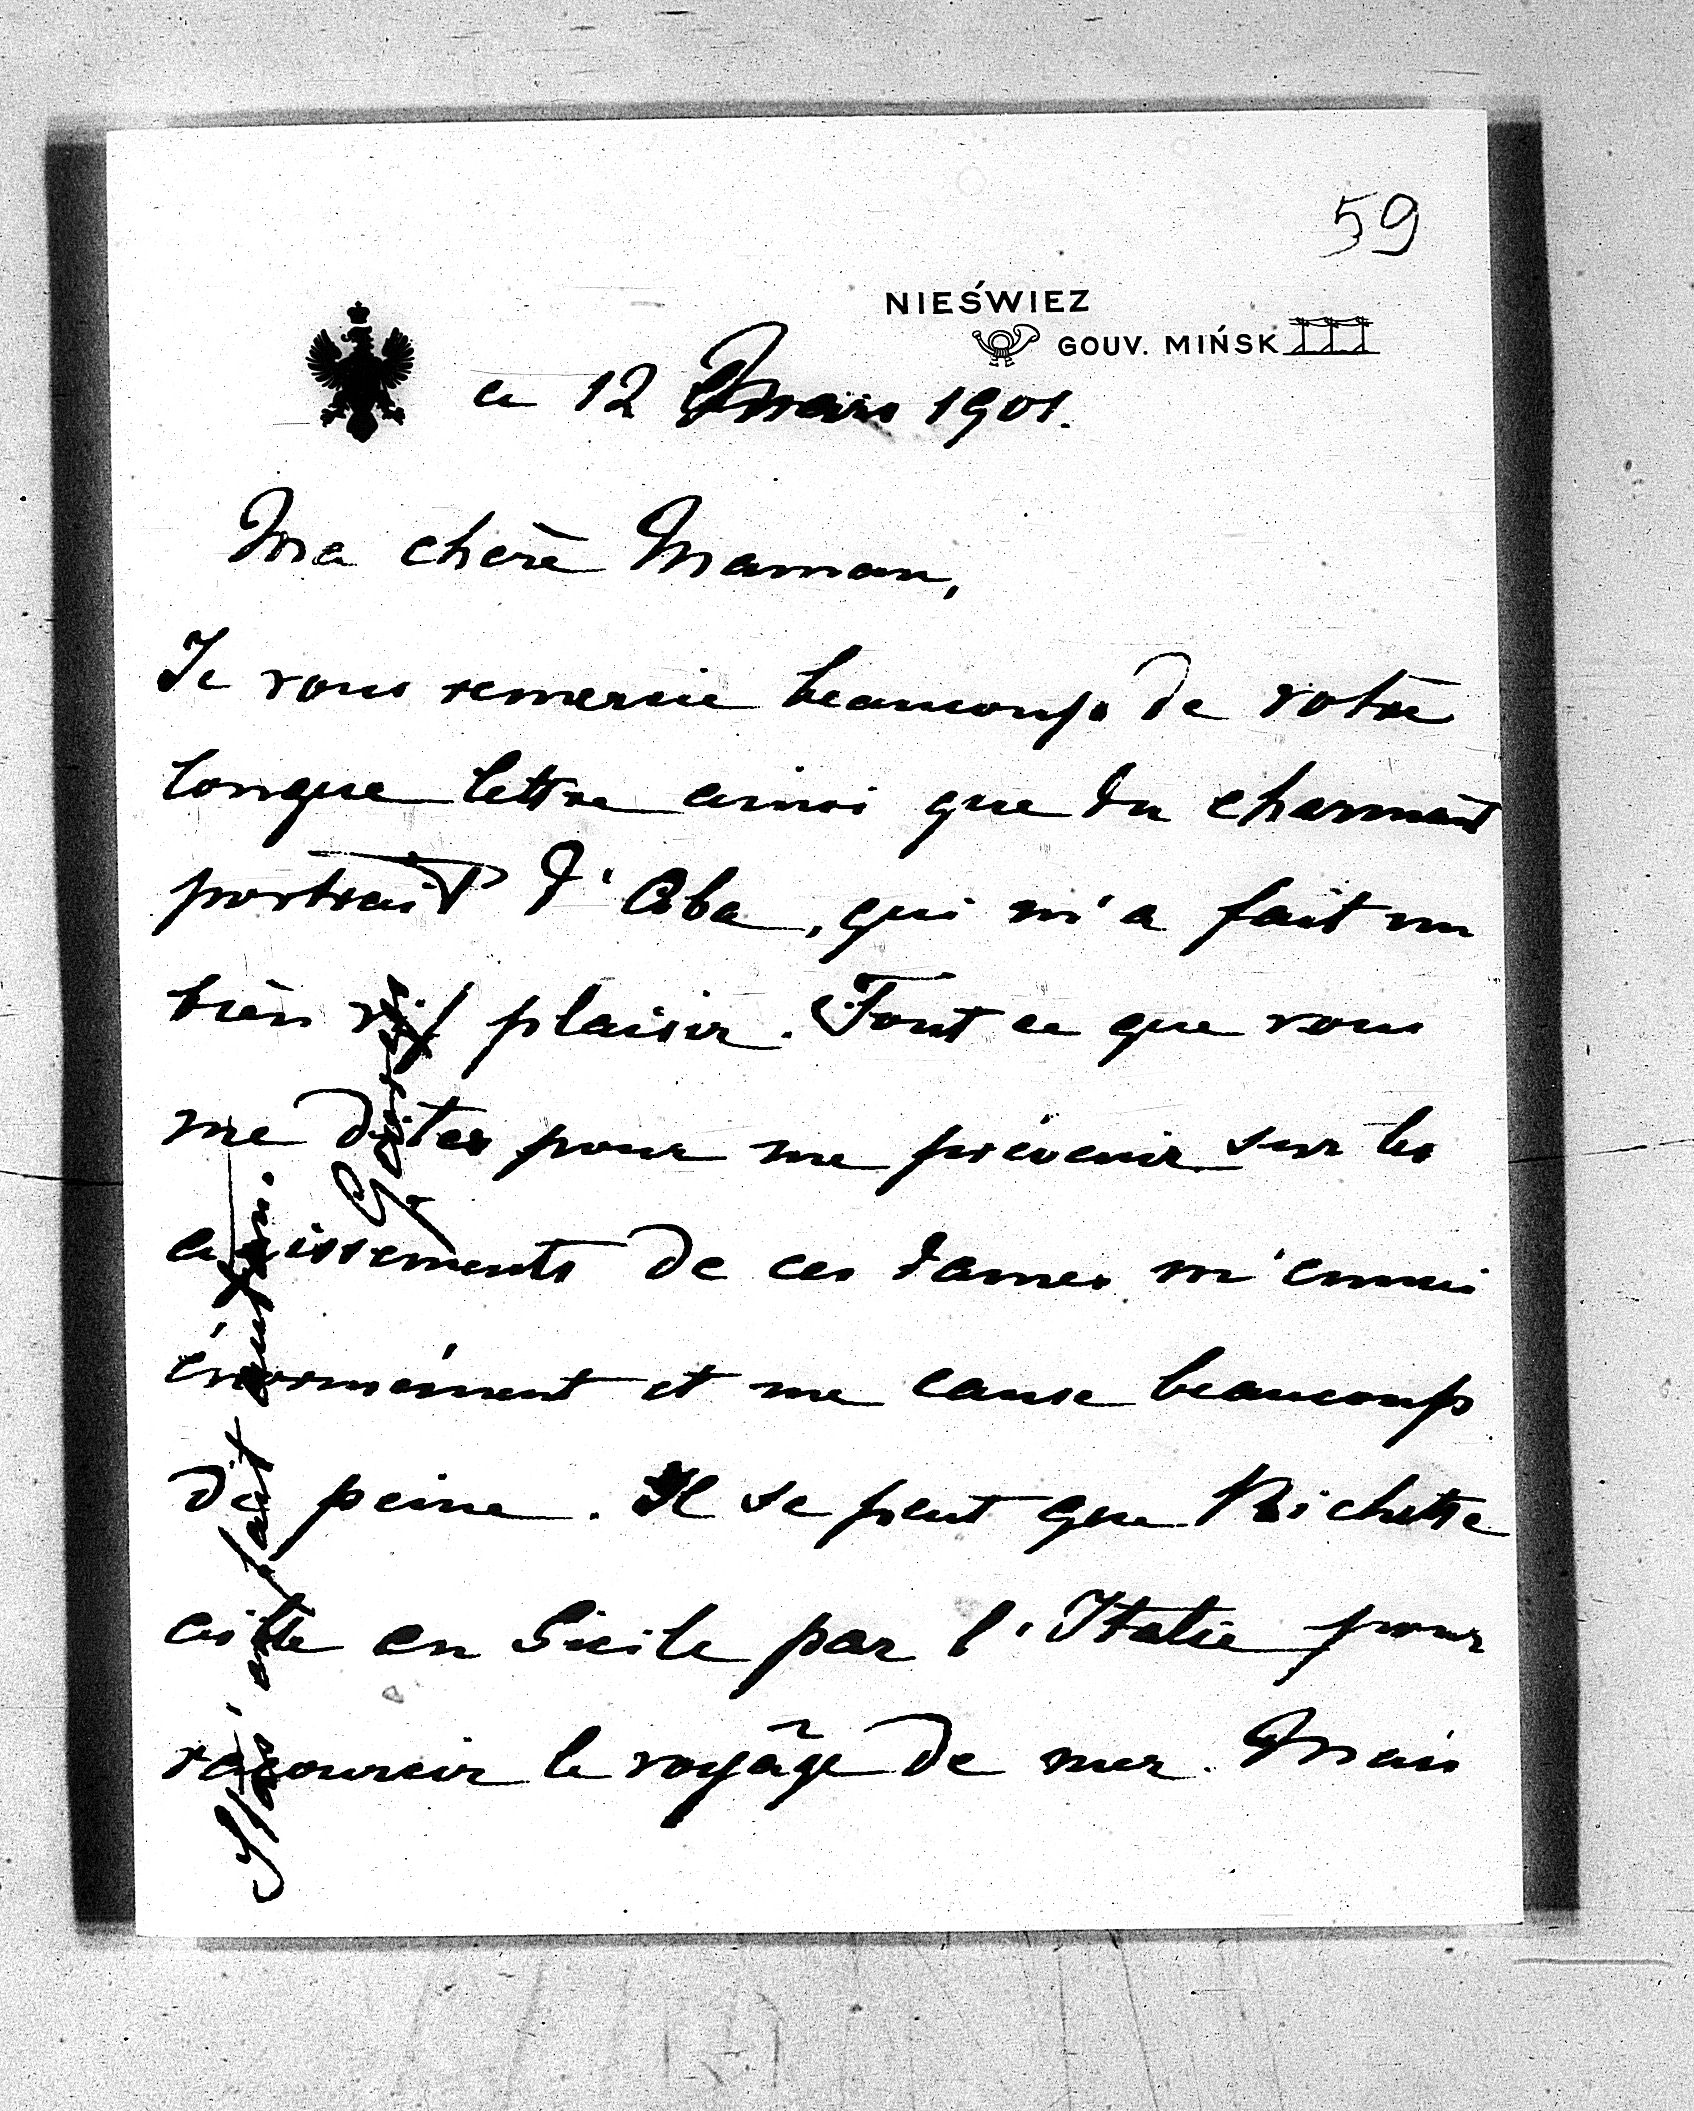 59
NIEŚWIEZ
GOUV. MIŃSK
ce 12 Mars 1901.
Ma chère Maman,
Je vous remercie beaucoup de votre
longue lettre ainsi que du charmant
portrait d'Aba, qui m'a fait un
bien vif plaisir. Tout ce que vous
me dites pour me prévenir sur les
agissements de ces dames m'ennui
énormément et me cause beaucoup
de peine. Il se peut que Bichette
aille en Sicile par l'Italie pour
racourcir le voyage de mer. Mais
Stas' en fait autant.